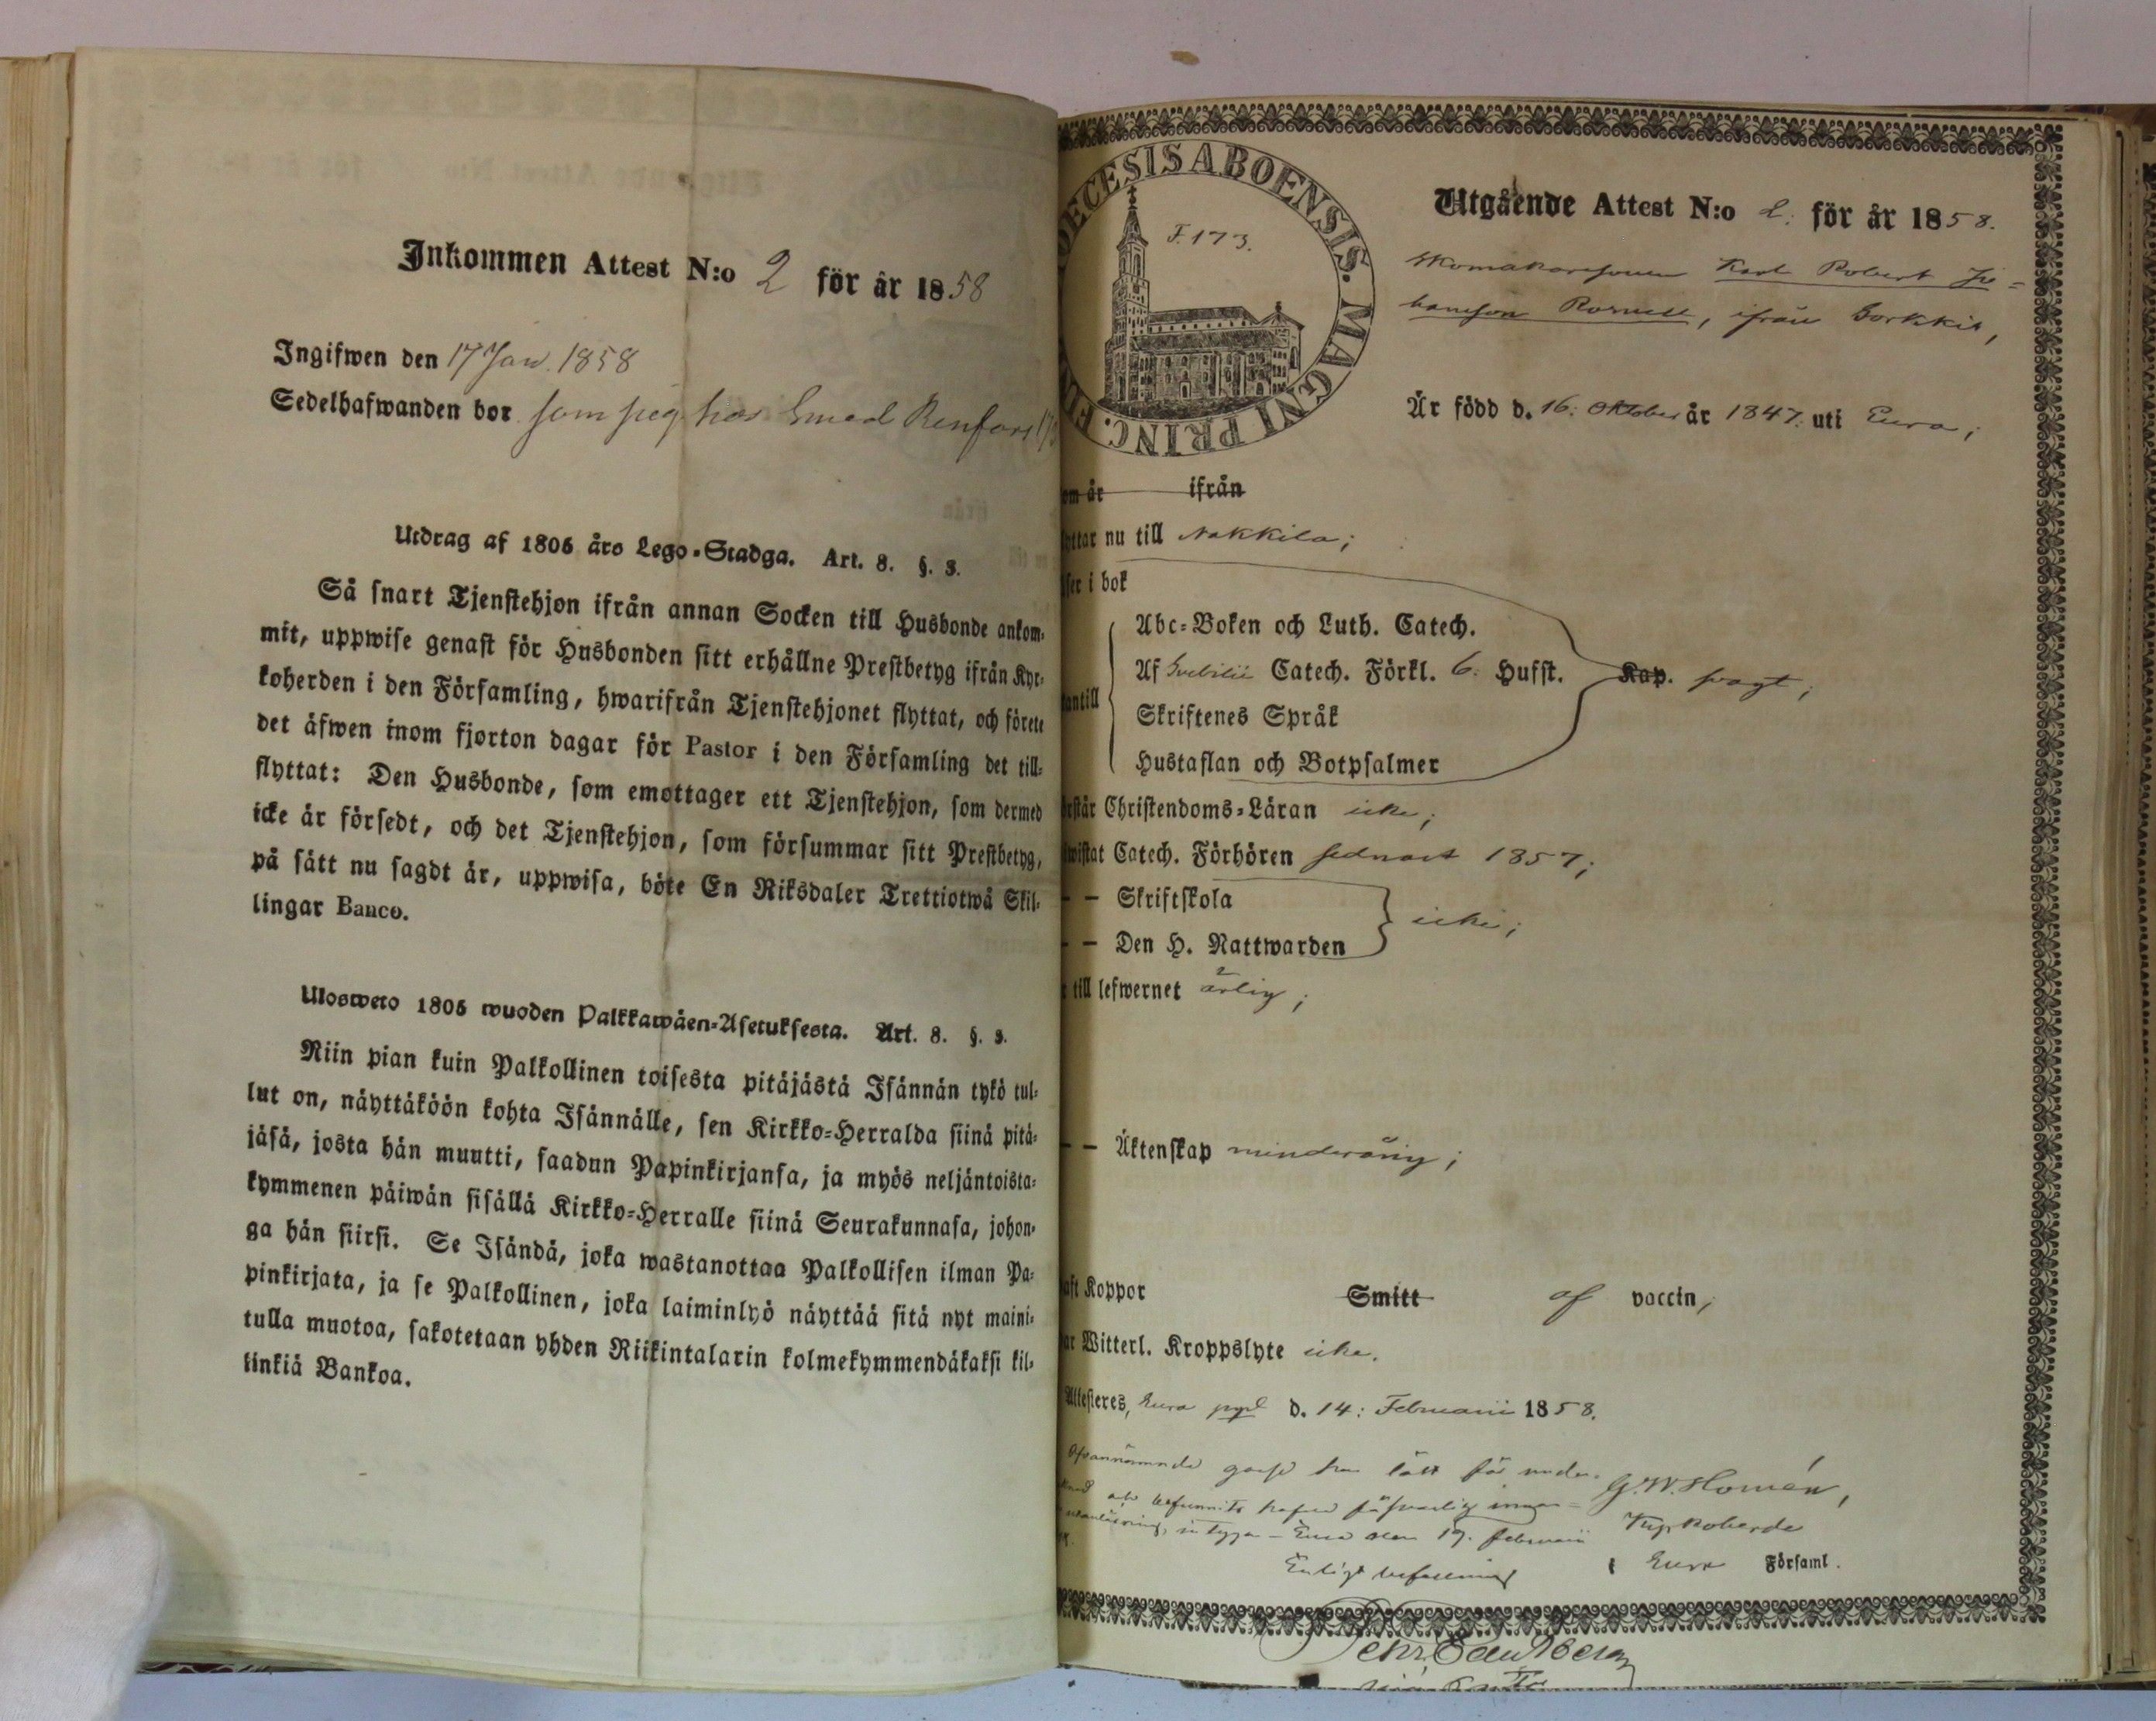 Inkommen Attest N:o 2 för år 1858
Ingifwen den 17 Jan. 1858
Sedelhafwanden bor som pig hos Smed Renfors
Utdrag af 1805 års Lego-Stadga. Art. 8. §. 3.
Så snart Tjenstehjon ifrån annan Socken till Husbonde ankom-
mit, uppwise genast för Husbonden sitt erhållne Prestbetyg ifrån Kyr-
koherden i den Församling, hwarifrån Tjenstehjonet flyttat, och förete
det äfwen inom fjorton dagar för Pastor i den Församling det till-
flyttat: Den Husbonde, som emottager ett Tjenstehjon, som dermed
icke är försedt, och det Tjenstehjon, som försummar sitt Prestbetyg,
på sätt nu sagdt är, uppwisa, böte En Riksdaler Trettiotwå Skil-
lingar Banco.
Ulosweto 1805 wuoden Palkkawäen-Asetuksesta. Art. 8. §. 3.
Niin pian kuin Palkollinen toisesta pitäjästä Isännän tykö tul-
lut on, näyttäköön kohta Isännälle, sen Kirkko-Herralda siinä pitä-
jäsä, josta hän muutti, saadun Papinkirjansa, ja myös neljäntoista-
kymmenen päiwän sisällä Kirkko-Herralle siinä Seurakunnasa, johon-
ga hän siirsi. Se Isändä, joka wastanottaa Palkollisen ilman Pa-
pinkirjata, ja se Palkollinen, joka laiminlyö näyttää sitä nyt maini-
tulla muotoa, sakotetaan yhden Riikintalarin kolmekymmendäkaksi kil-
linkiä Bankoa.
ECESIS ABOENSIS. MAGNI PRINC. FIN
F. 173.
Utgående Attest N:o 2: för år 1858.
Skomakaresonen Karl Robert Jo-
hansson Rornell, ifrån
Är född d. 16: Oktober år 1847: uti Eura;
om år ifrån
yttar nu till Nakkila;
ser i bok
Abc-Boken och Luth. Catech.
Af Svebilii Catech. Förkl. 6: Hufst. Kap. svagt;
antill
Skriftenes Språk
Hustaflan och Botpsalmer
rstår Christendoms-Läran icke;
wistat Catech. Förhören sednast 1857;
— — Skriftskola
icke;
— — Den H. Nattwarden
r till lefwernet ärlig;
— — Äktenskap minderårig;
aft Koppor Smitt af vaccin,
ar Witterl. Kroppslyte icke.
Attesteres, Eura d. 14: Februarii 1858.
Ofvannämnde gosse har låtit för under-
G. W. Homén,
Kyrkoherde
Eura den 19. Februarii
i Eura Församl.
Enligt befallning